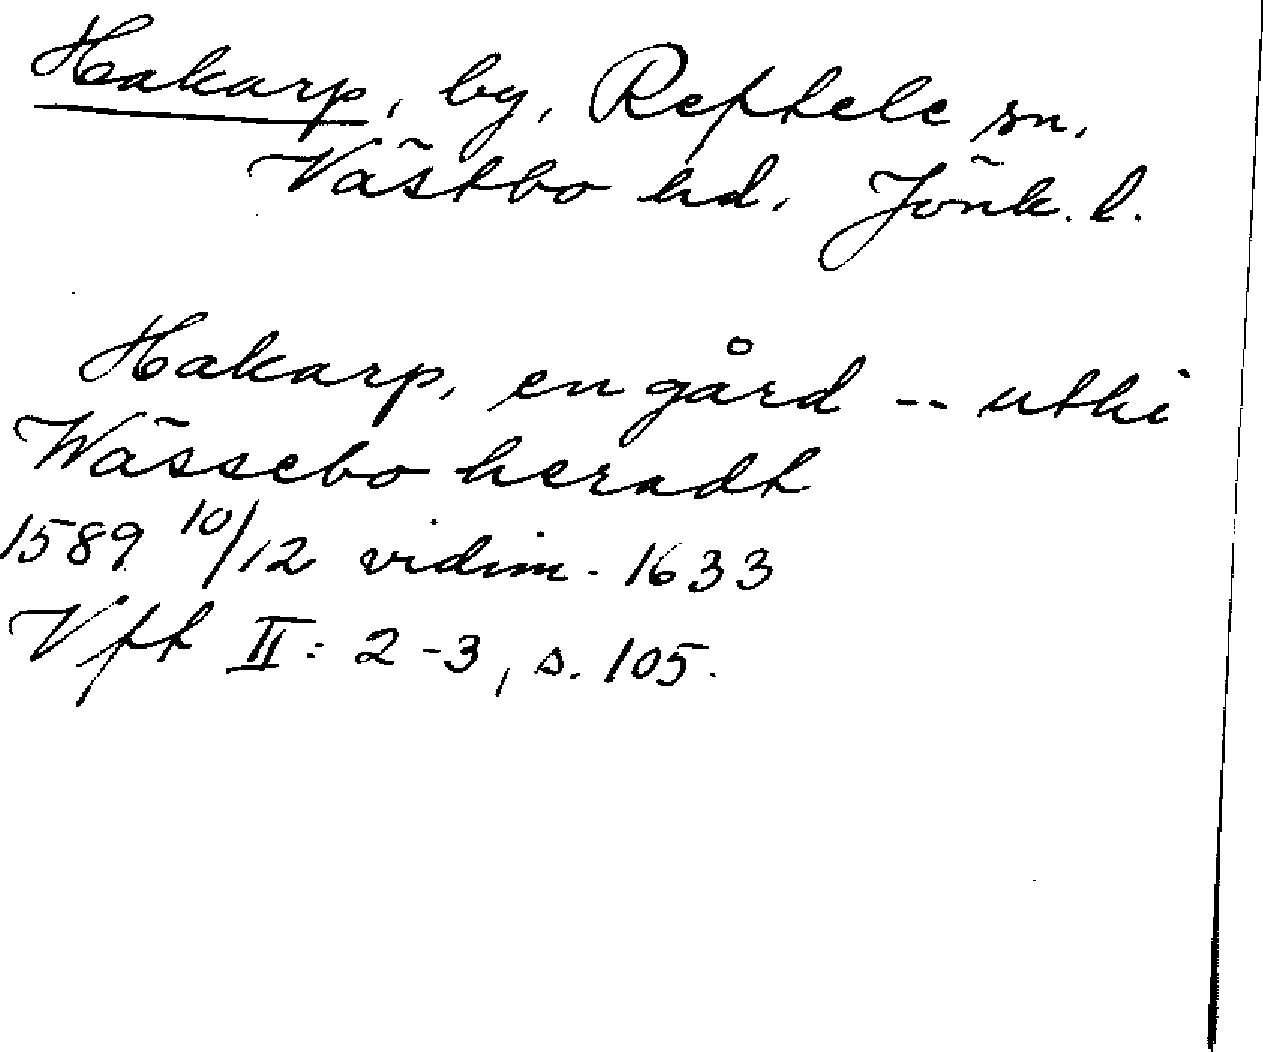 Hakarp, by, Reftele sn.
Västbo hd. Jönk. l.
Hakarp, en gård -- uthi
Wässebo heradt
1589 10/12 vidim. 1633
Vft II: 2-3, s. 105.